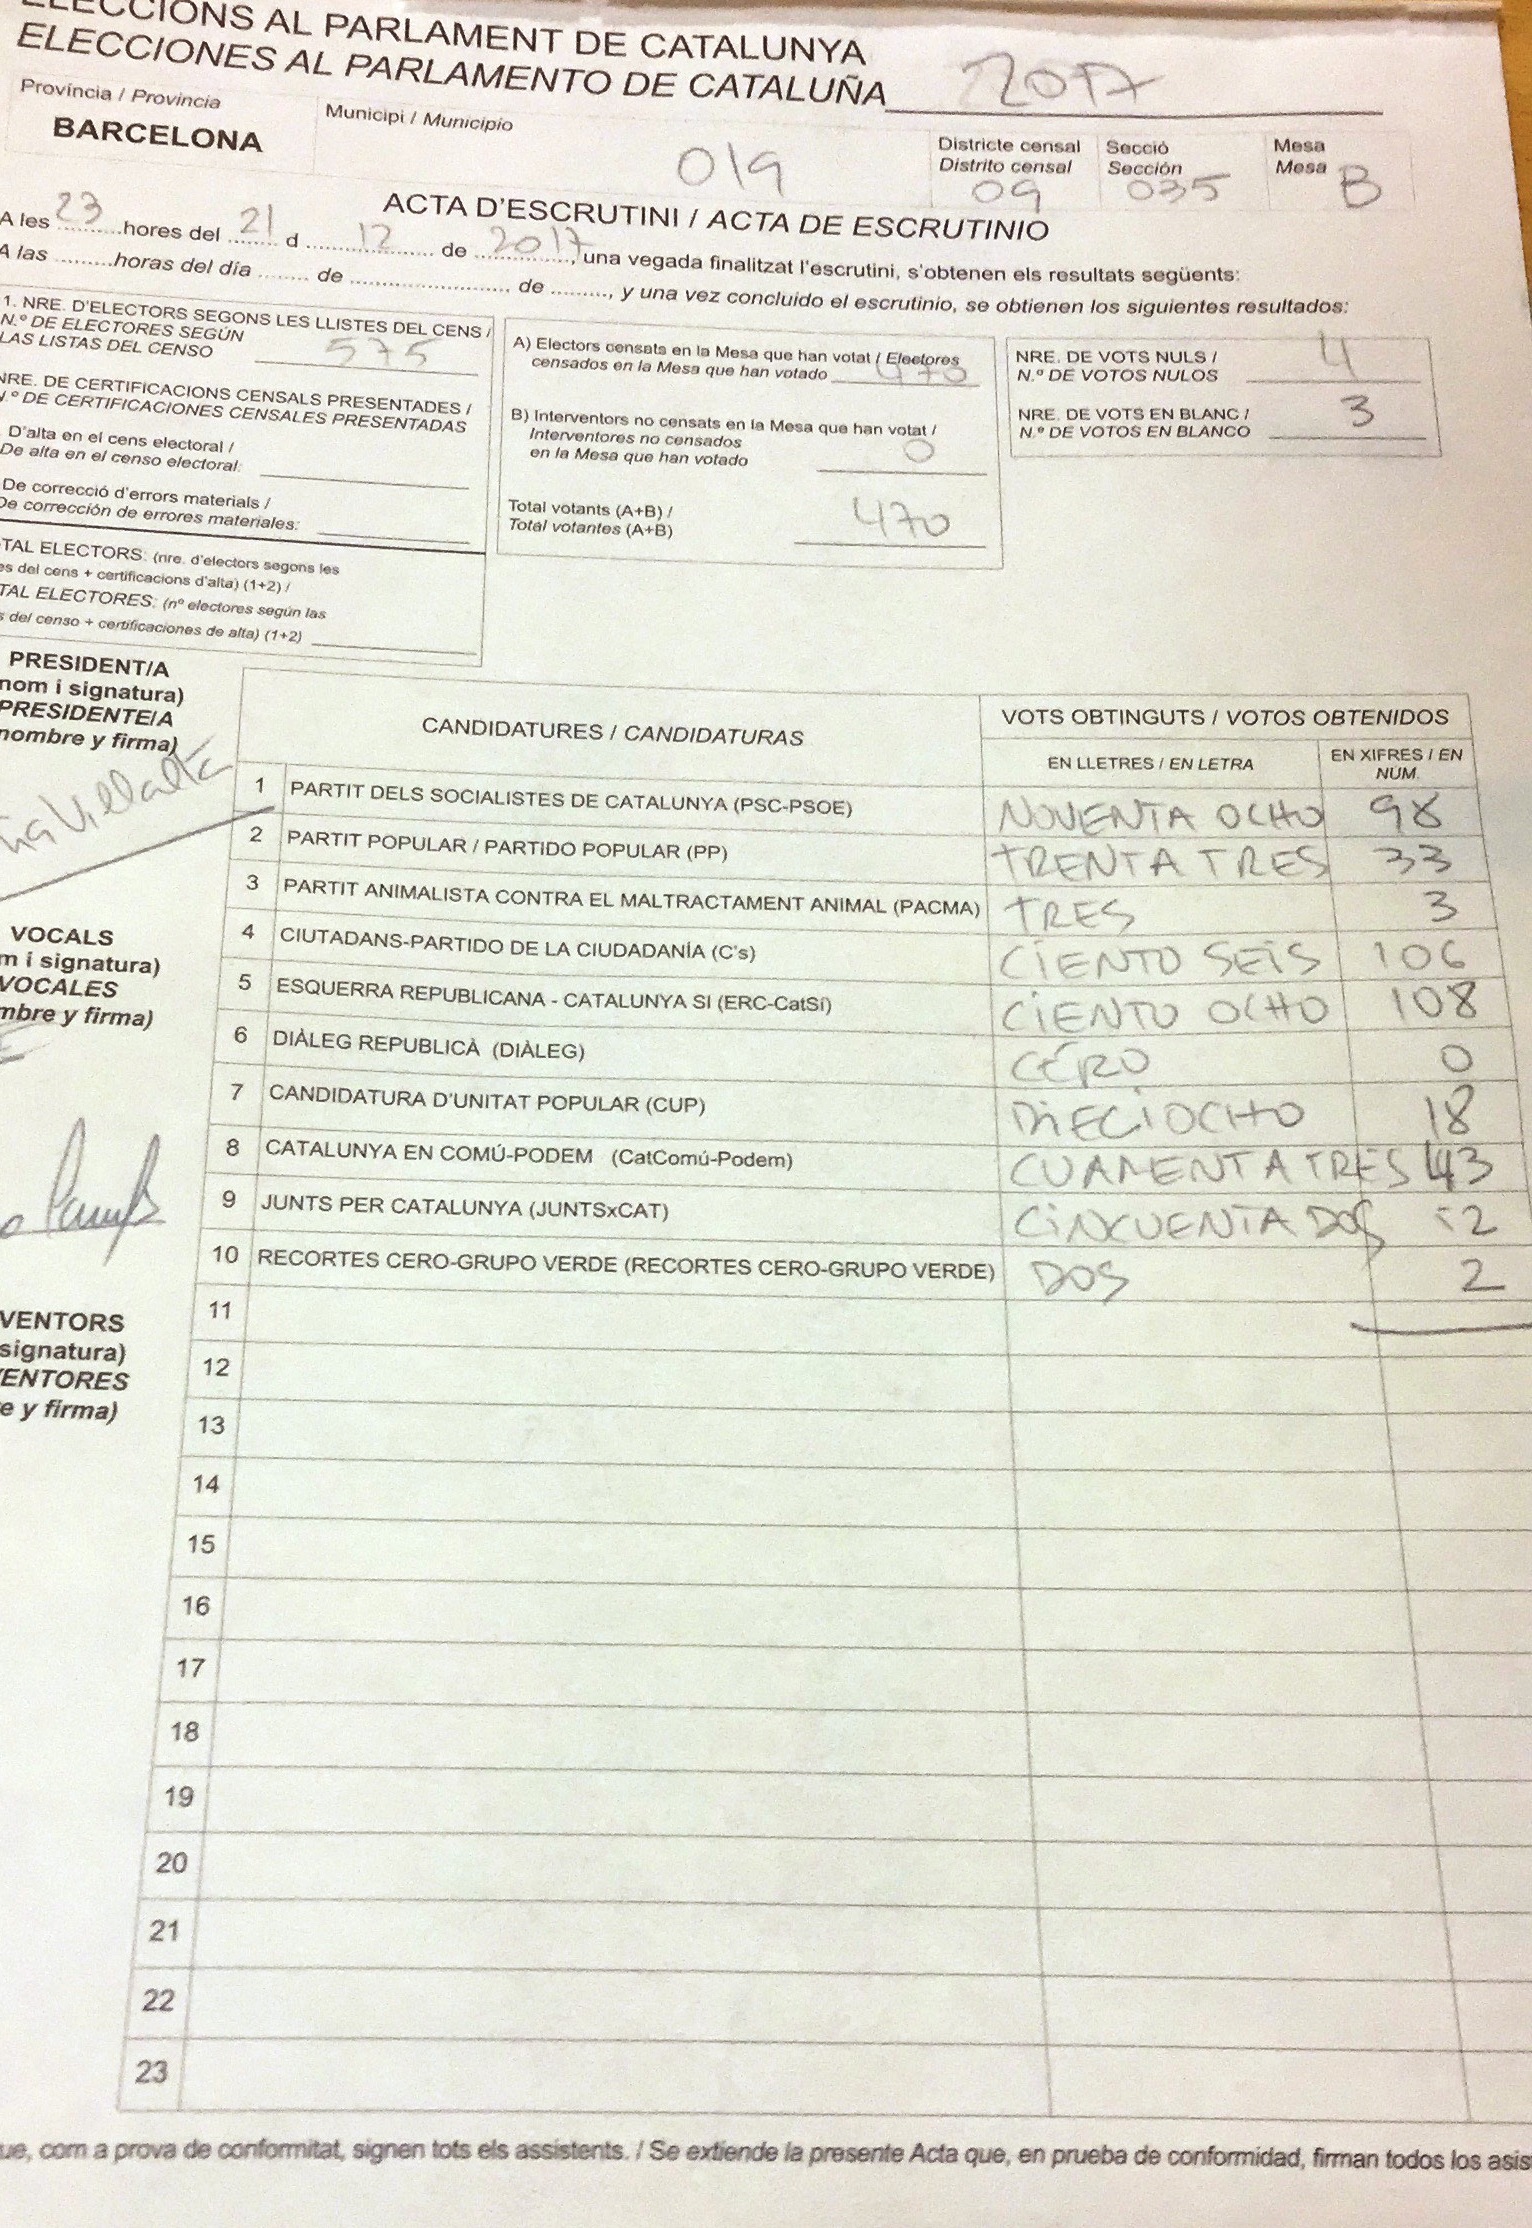 ELECCIONS AL PARLAMENT DE CATALUNYA
ELECCIONES AL PARLAMENTO DE CATALUÑA 2017
Província / Provincia
BARCELONA
Municipi / Municipio
019
Districte censal
Distrito censal
09
Secció
Sección
035
Mesa
Mesa
B
ACTA D'ESCRUTINI / ACTA DE ESCRUTINIO
A les 23 hores del 21 d 12 de 2017, una vegada finalitzat l'escrutini, s'obtenen els resultats següents:
A las ..........horas del día ........ de ........................ de ........, y una vez concluido el escrutinio, se obtienen los siguientes resultados:
1. NRE. D'ELECTORS SEGONS LES LLISTES DEL CENS /
N.º DE ELECTORES SEGÚN
LAS LISTAS DEL CENSO 575
NRE. DE CERTIFICACIONS CENSALS PRESENTADES /
N.º DE CERTIFICACIONES CENSALES PRESENTADAS
D'alta en el cens electoral /
De alta en el censo electoral:
De correcció d'errors materials /
De corrección de errores materiales:
TAL ELECTORS: (nre. d'electors segons les
es del cens + certificacions d'alta) (1+2) /
TAL ELECTORES: (nº electores según las
s del censo + certificaciones de alta) (1+2)
A) Electors censats en la Mesa que han votat / Electores
censados en la Mesa que han votado 470
B) Interventors no censats en la Mesa que han votat /
Interventores no censados
en la Mesa que han votado 0
Total votants (A+B) /
Total votantes (A+B) 470
NRE. DE VOTS NULS /
N.º DE VOTOS NULOS 4
NRE. DE VOTS EN BLANC /
N.º DE VOTOS EN BLANCO 3
PRESIDENT/A
nom i signatura)
PRESIDENTE/A
nombre y firma)
VOCALS
m i signatura)
VOCALES
mbre y firma)
VENTORS
signatura)
VENTORES
e y firma)
CANDIDATURES / CANDIDATURAS
VOTS OBTINGUTS / VOTOS OBTENIDOS
EN LLETRES / EN LETRA
EN XIFRES / EN
NÚM.
1 PARTIT DELS SOCIALISTES DE CATALUNYA (PSC-PSOE) NOVENTA OCHO 98
2 PARTIT POPULAR / PARTIDO POPULAR (PP) TRENTA TRES 33
3 PARTIT ANIMALISTA CONTRA EL MALTRACTAMENT ANIMAL (PACMA) TRES 3
4 CIUTADANS-PARTIDO DE LA CIUDADANÍA (C's) CIENTO SEIS 106
5 ESQUERRA REPUBLICANA - CATALUNYA SÍ (ERC-CatSí) CIENTO OCHO 108
6 DIÀLEG REPUBLICÀ (DIÀLEG) CERO 0
7 CANDIDATURA D'UNITAT POPULAR (CUP) DIECIOCHO 18
8 CATALUNYA EN COMÚ-PODEM (CatComú-Podem) CUARENTA TRES 43
9 JUNTS PER CATALUNYA (JUNTSxCAT) CINCUENTA DOS 52
10 RECORTES CERO-GRUPO VERDE (RECORTES CERO-GRUPO VERDE) DOS 2
11
12
13
14
15
16
17
18
19
20
21
22
23
ue, com a prova de conformitat, signen tots els assistents. / Se extiende la presente Acta que, en prueba de conformidad, firman todos los asis